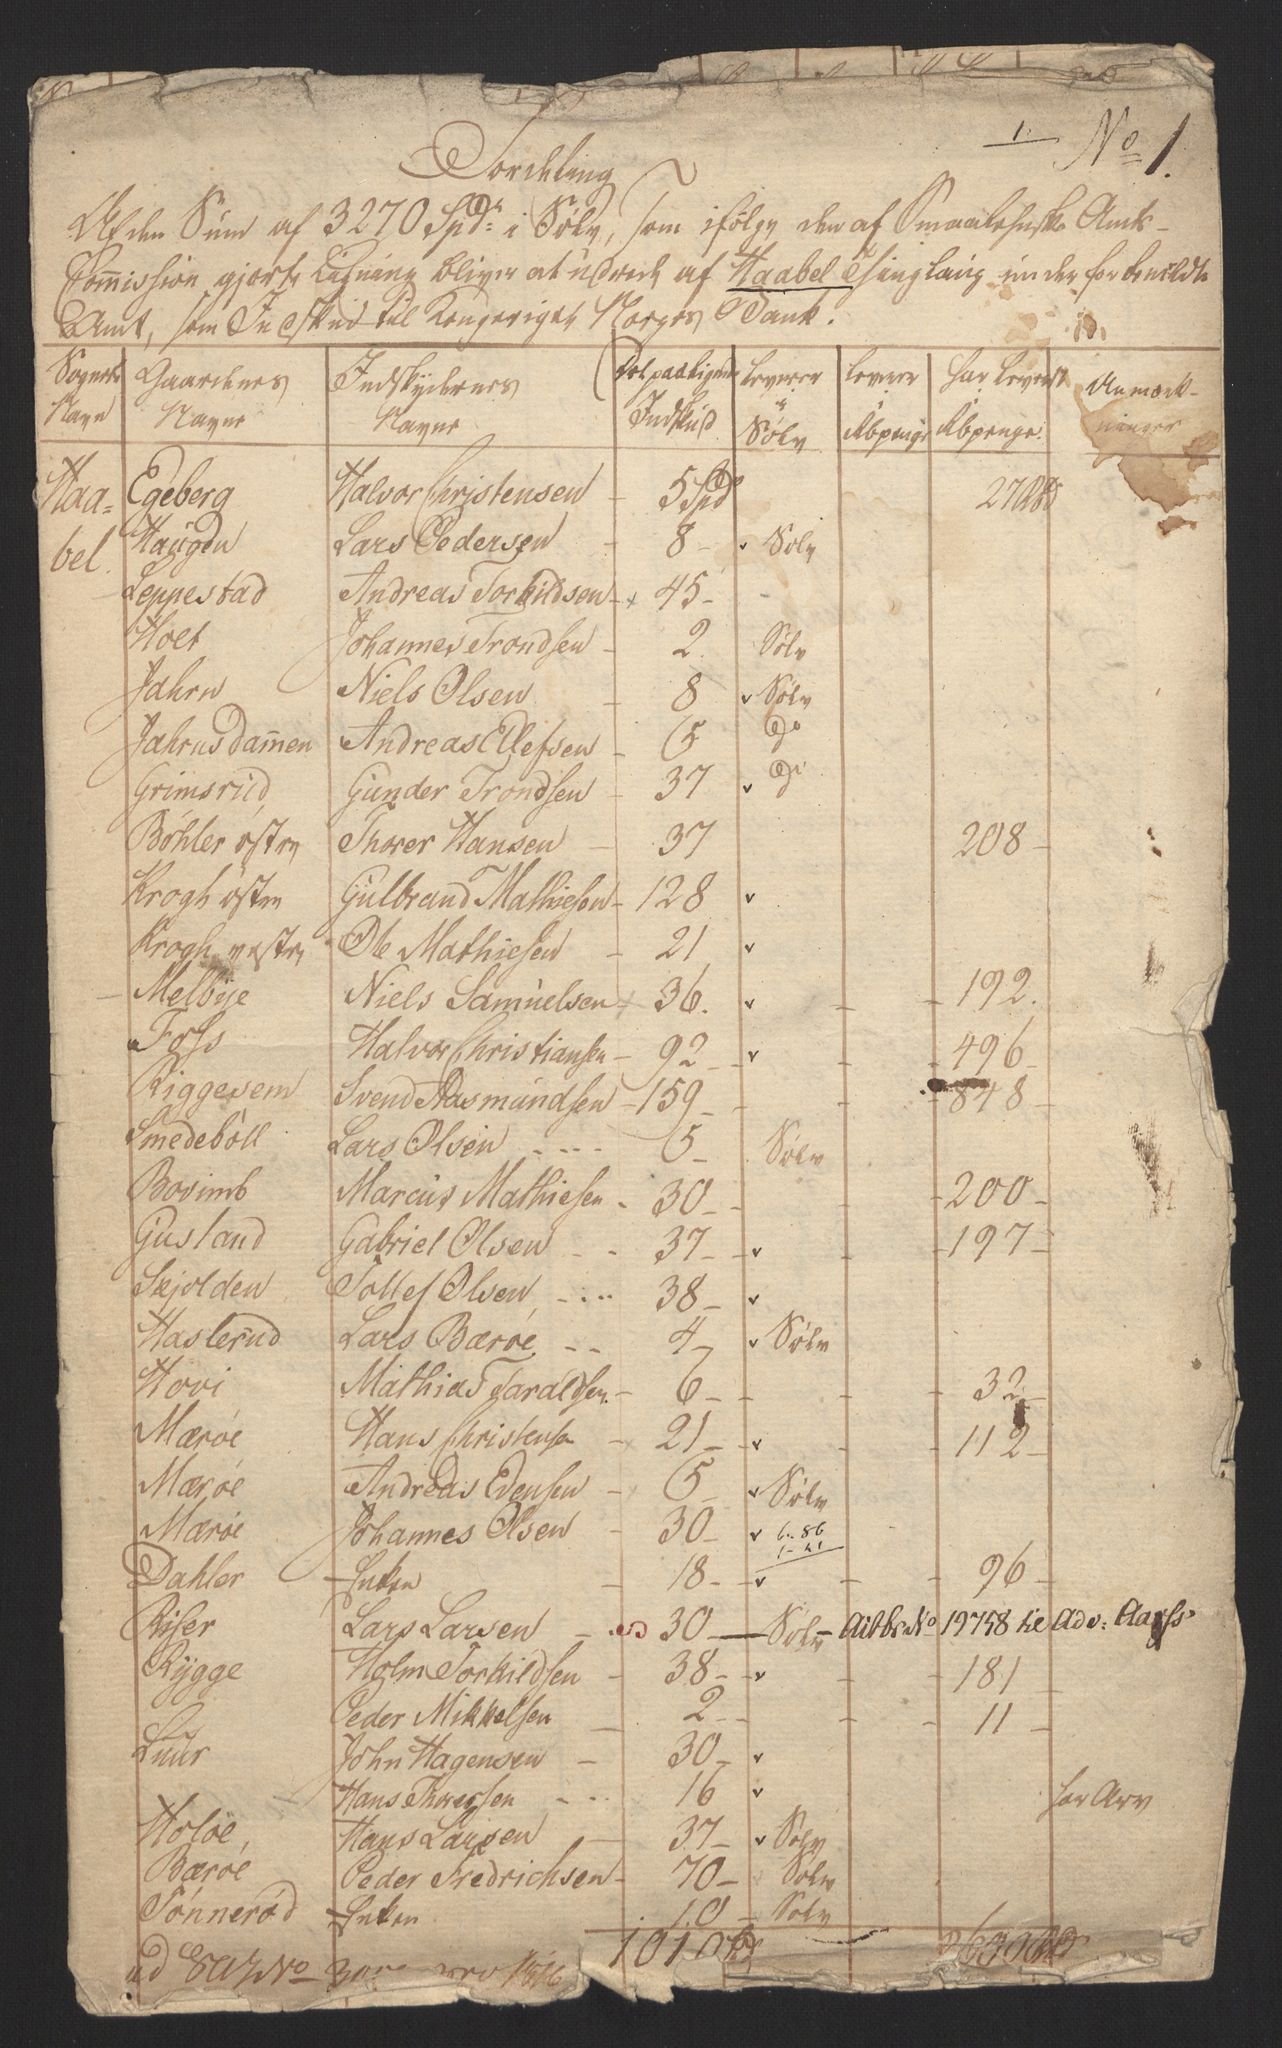 1. No 1.
Fordeling
Af den Sum af 3270 Spd. i Sølv, som ifølge den af Smaalehnske Amts-
Commission gjorte Ligning bliver at udrede af Haabel Thinglaug under forbemeldte
Amt, som Indskud til Kongeriget Norges Bank.
Sognets Navn | Gaardenes Navne | Indskydernes Navne | Det paalignede Indskud | Leverer i Sølv | Leverer Rbpenge | har Leveret Rbpenge | Anmærkninger
Haabel. Egeberg Halvor Christensen - 5 Spd 27 Rbd
Haugen Lars Pedersen - 8 - v Sølv
Leppestad Andreas Torkildsen - 45 -
Holt Johannes Trondsen - 2. Sølv
Jahrn Niels Olsen - 8 v Sølv
Jahrnsdammen Andreas Ellefsen - 5 Do
Grimsrud Gunder Trondsen - 37 v Do
Bøhler østre Thorer Hansen - 37 208 -
Krogh østre Gulbrand Mathiesen - 128 v
Krogh vestre Ole Mathiesen - 21 v
Melbye Niels Samuelsen 36. v - - 192.
Foss Halvor Christiansen - 92 - v - 496 -
Riggesem Svend Aasmundsen - 159 - - - 848 -
Smedebøll Lars Olsen - - - - 5 - Sølv
Bovimb Marcus Mathiesen - 30 - - 200 -
Gusland Gabriel Olsen - - 37 - v - - 197 -
Skjolden Tollef Olsen - - - - 38 - v
Hasterud Lars Bærøe - - 4 - v Sølv
Hovi Mathias Taraldsen - 6 - - - - 32 -
Mærøe Hans Christensen - 21 - v - - 112 -
Mærøe Andreas Evensen - 5 - v Sølv
Mærøe Johannes Olsen - 30 - v 6.. 86
1 - 41
Dahler Enken - 18 - v - - 96 -
Riser Lars Larsen - 30 - Sølv - No 19758
Rygge Holm Torkildsen - 38 - v - - 181 -
Peder Mikkelsen - 2 - - - 11 -
Luur John Hagensen - 30 - v
Hans Thoresen - - - 16 v har Arv
Holøe, Hans Larsen - 37 - v Sølv
Bærøe Peder Fredrichsen - 70 - Sølv
Tønnerød Enken 10 - Sølv
1010